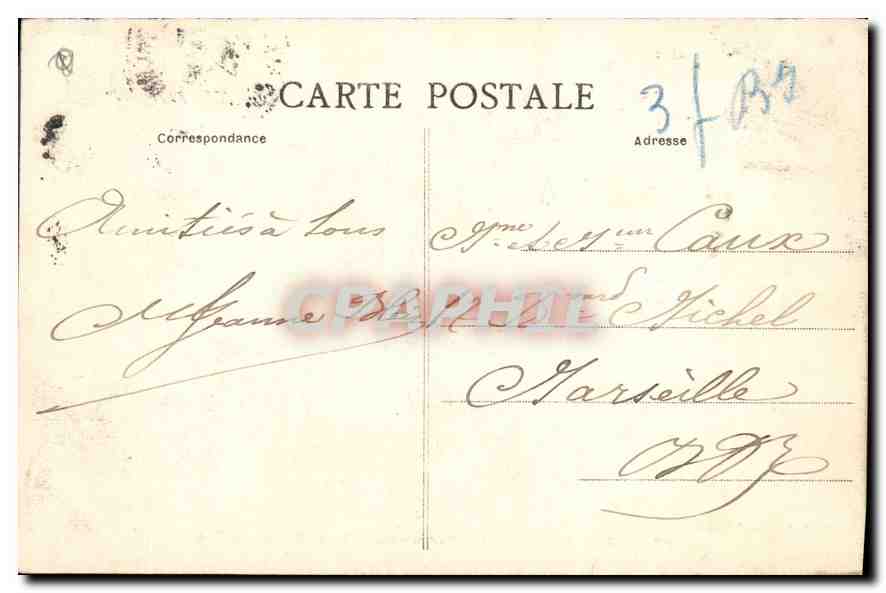 CARTE POSTALE
3f
Correspondance
Adresse
Amitiés à tous
M Jeanne
Mme & Mr Caux
Bard Michel
Marseille
CPAPHIL